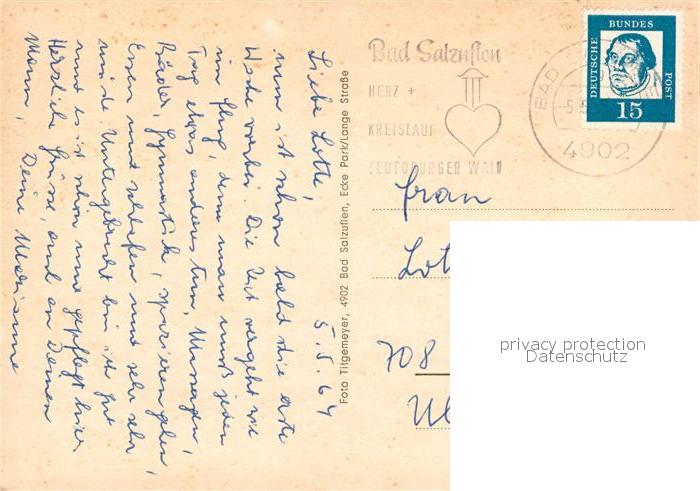 5.5.64
Liebe Lotte,
nun ist schon bald die erste
Woche vorbei. Die Zeit vergeht wie
im Flug, denn man muß jeden
Tag etwas anderes tun, Massagen,
Bäder, Gymnastik, spazieren gehen,
Essen und schlafen und sehr sehr
müde. Untergebracht bin ich gut
und es ist schön und gepflegt hier.
Herzliche Grüße, auch an Deinen
Mann, Deine Marianne
Foto Titgemeyer, 4902 Bad Salzuflen, Ecke Park/Lange Straße
Bad Salzuflen
HERZ +
KREISLAUF
TEUTOBURGER WALD
BAD
4902
DEUTSCHE
BUNDES
POST
15
Frau
Lot
708
privacy protection
Datenschutz